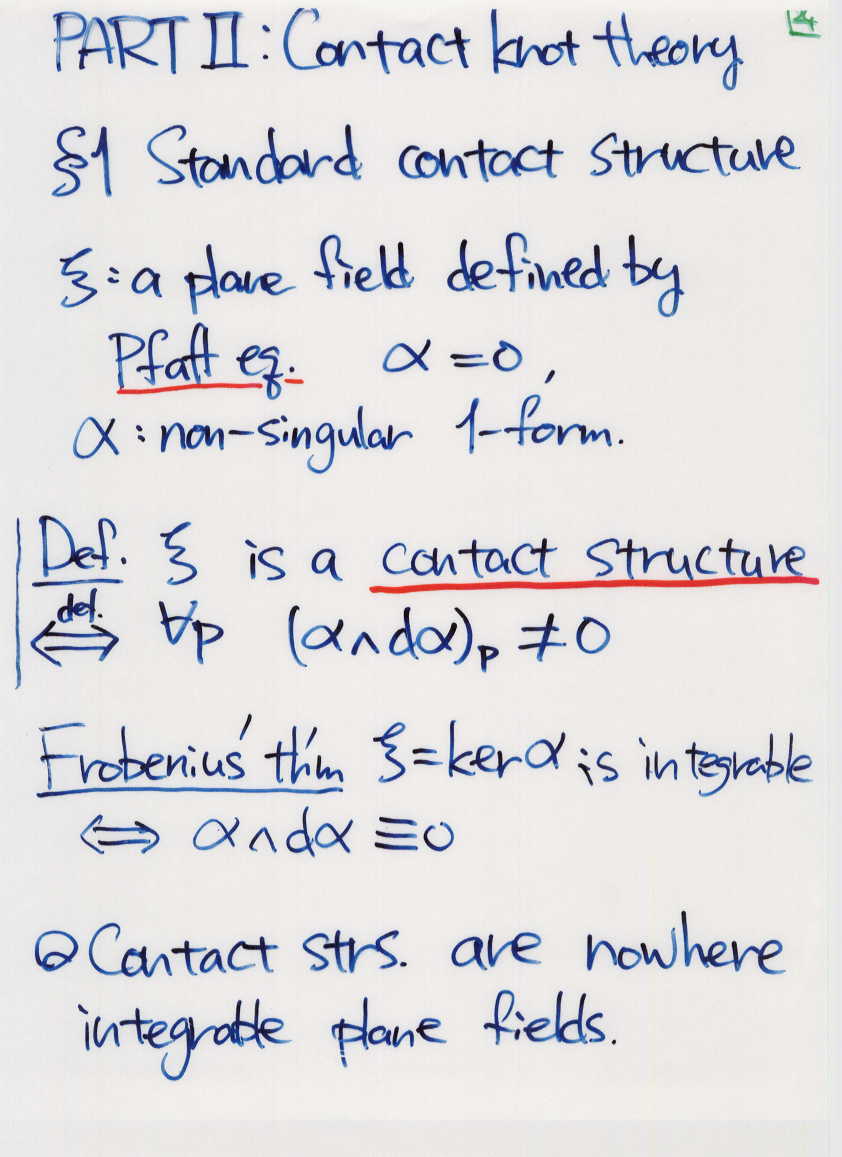 PART II: Contact knot theory
4
§1 Standard contact structure
ξ: a plane field defined by
Pfaff eq. α = 0,
α: non-singular 1-form.
Def. ξ is a contact structure
def. ⟺ ∀p (α∧dα)p ≠ 0
Frobenius' thm ξ = ker α is integrable
⟺ α∧dα ≡ 0
Contact strs. are nowhere
integrable plane fields.